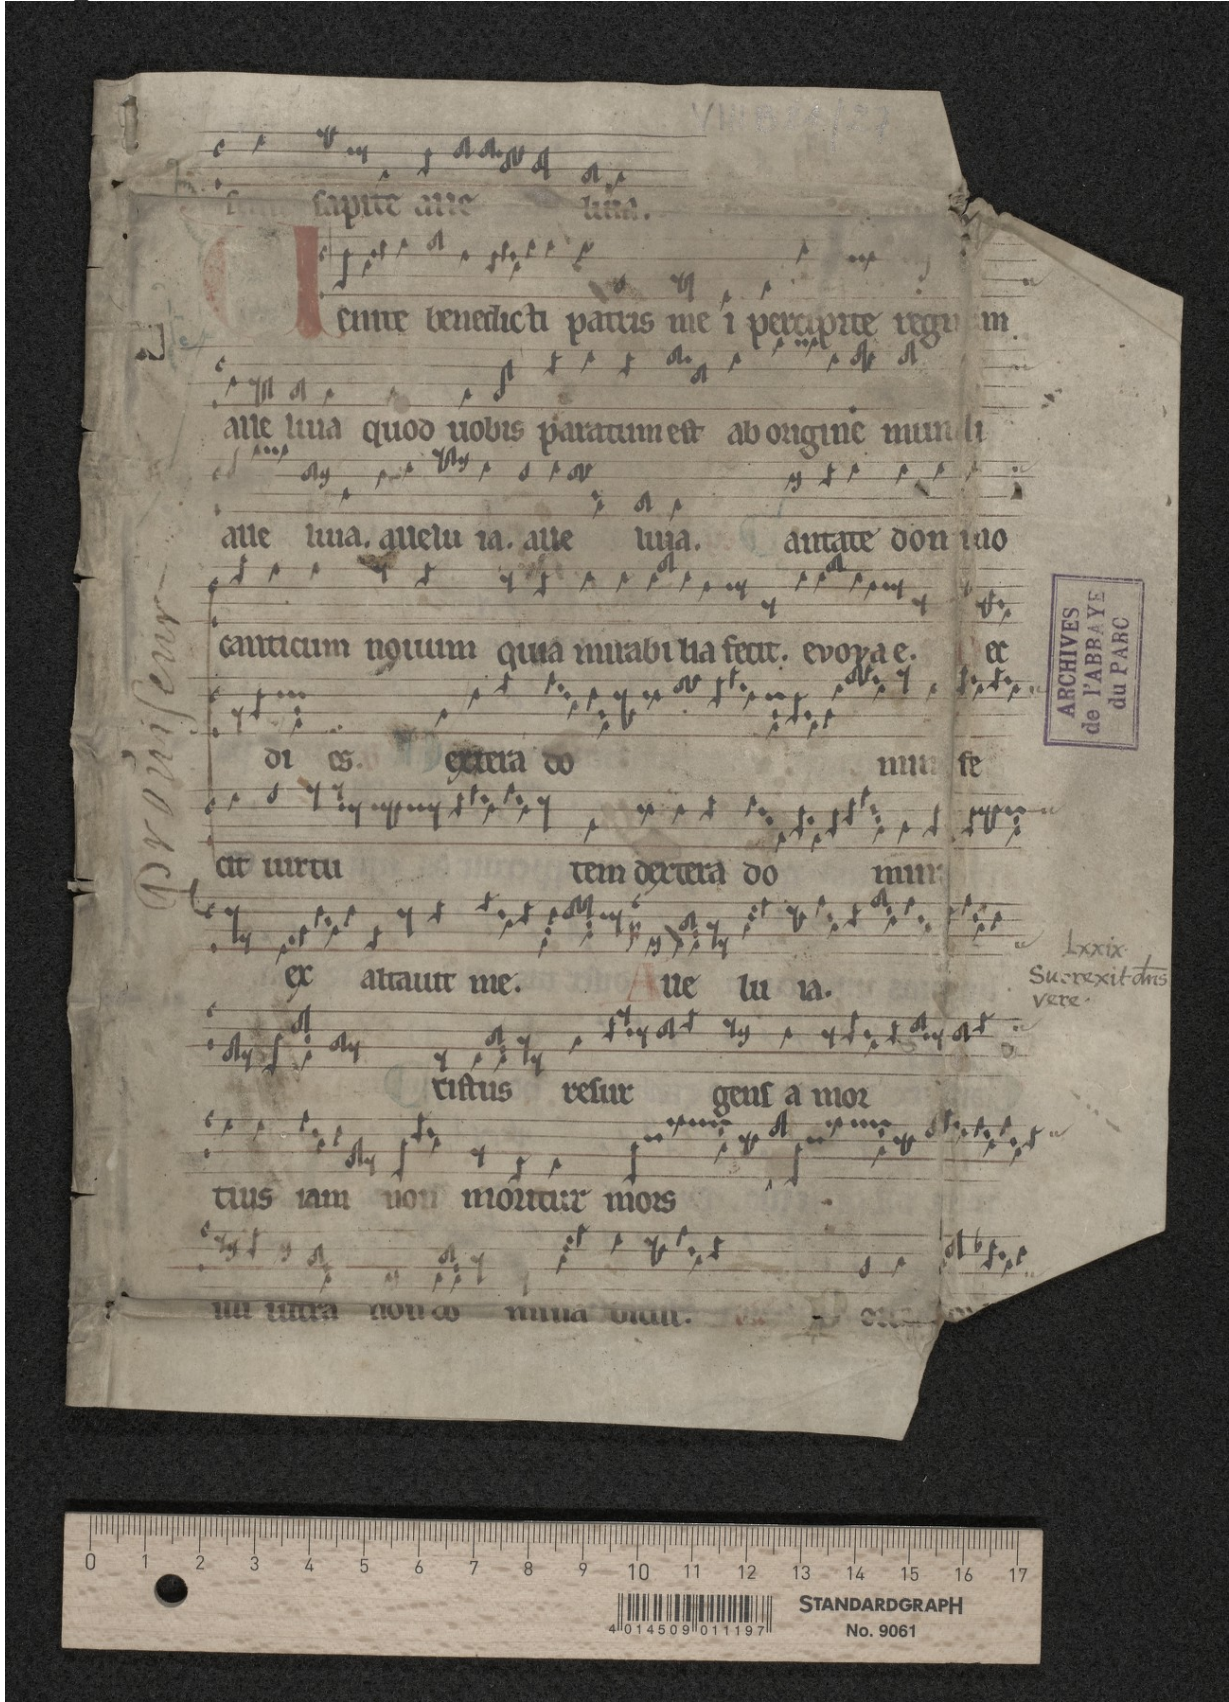 sapite alle luia.
Uenite benedicti patris me i percipite regnum
alle luia quod uobis paratum est ab origine mundi
alle luia. allelu ia. alle luia. Cantate domino
canticum nouum quia mirabilia fecit. evovae. ex
di es. Dextera do mini fe
cit uirtu tem dextera do mini
ex altauit me. Alle lu ia.
Cristus resur gens a mor
tuis iam non moritur mors
illi ultra non do
Lxxix
Surrexit dns
vere.
ARCHIVES
de l'ABBAYE
du PARC
0 1 2 3 4 5 6 7 8 9 10 11 12 13 14 15 16 17
4 014509 011197
STANDARDGRAPH
No. 9061